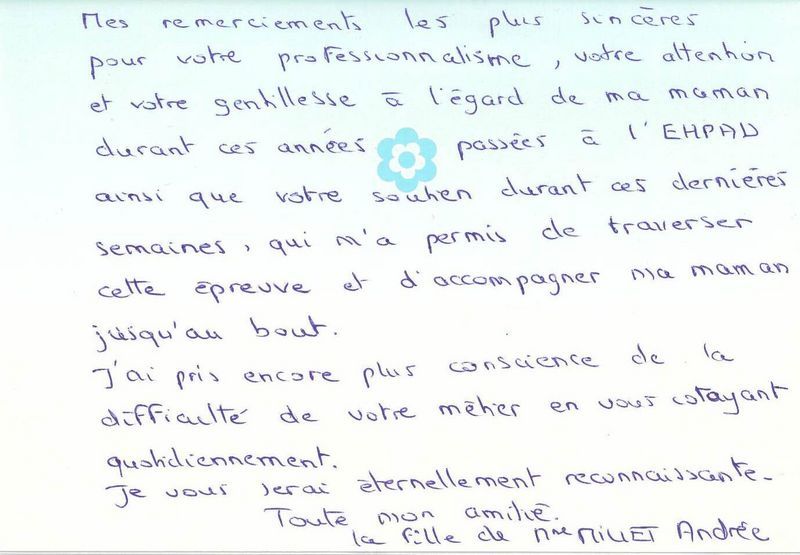 Mes remerciements les plus sincères
pour votre professionnalisme, votre attention
et votre gentillesse à l'égard de ma maman
durant ces années passées à l'EHPAD
ainsi que votre soutien durant ces dernières
semaines, qui m'a permis de traverser
cette épreuve et d'accompagner ma maman
jusqu'au bout.
J'ai pris encore plus conscience de la
difficulté de votre métier en vous cotoyant
quotidiennement.
Je vous serai éternellement reconnaissante.
Toute mon amitié.
la fille de Mme MILLET Andrée